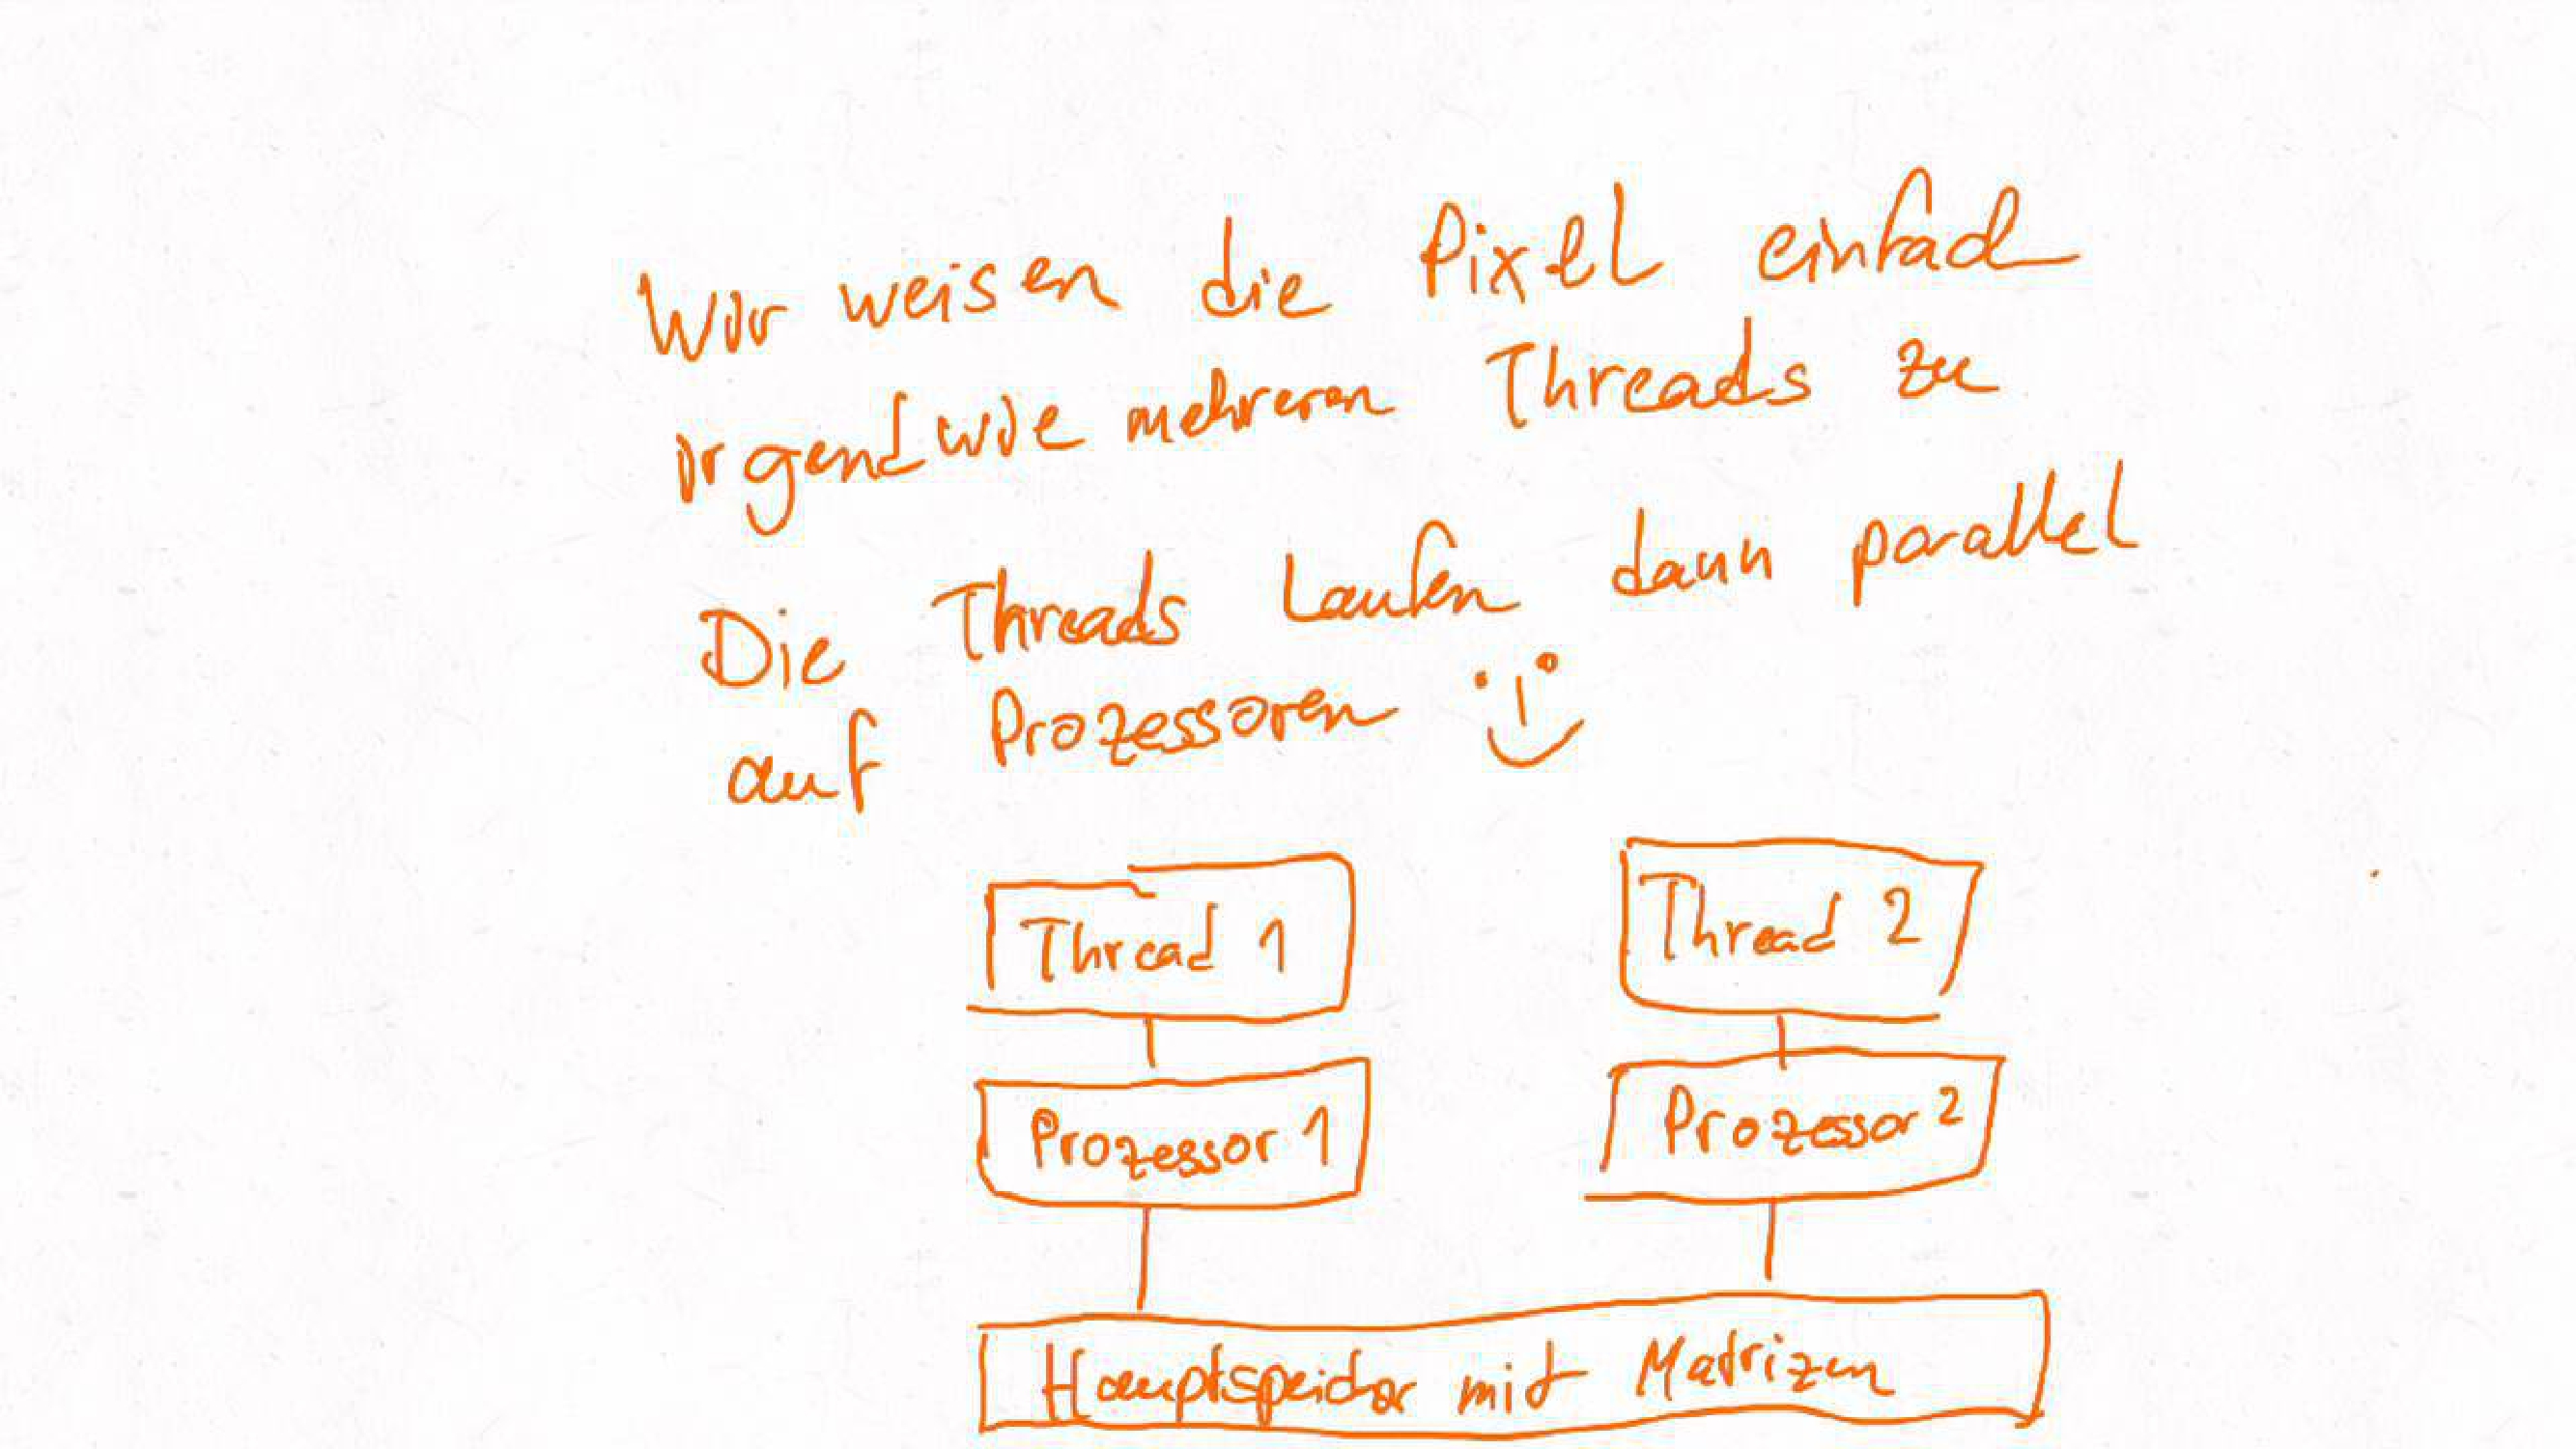 Wir weisen die Pixel einfach
irgendwie mehreren Threads zu
Die Threads laufen dann parallel
auf Prozessoren
Thread 1
Thread 2
Prozessor 1
Prozessor 2
Hauptspeicher mit Matrizen